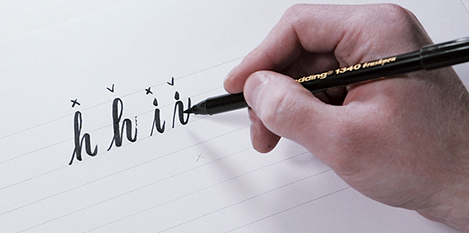 h h i i
edding® 1340 brushpen